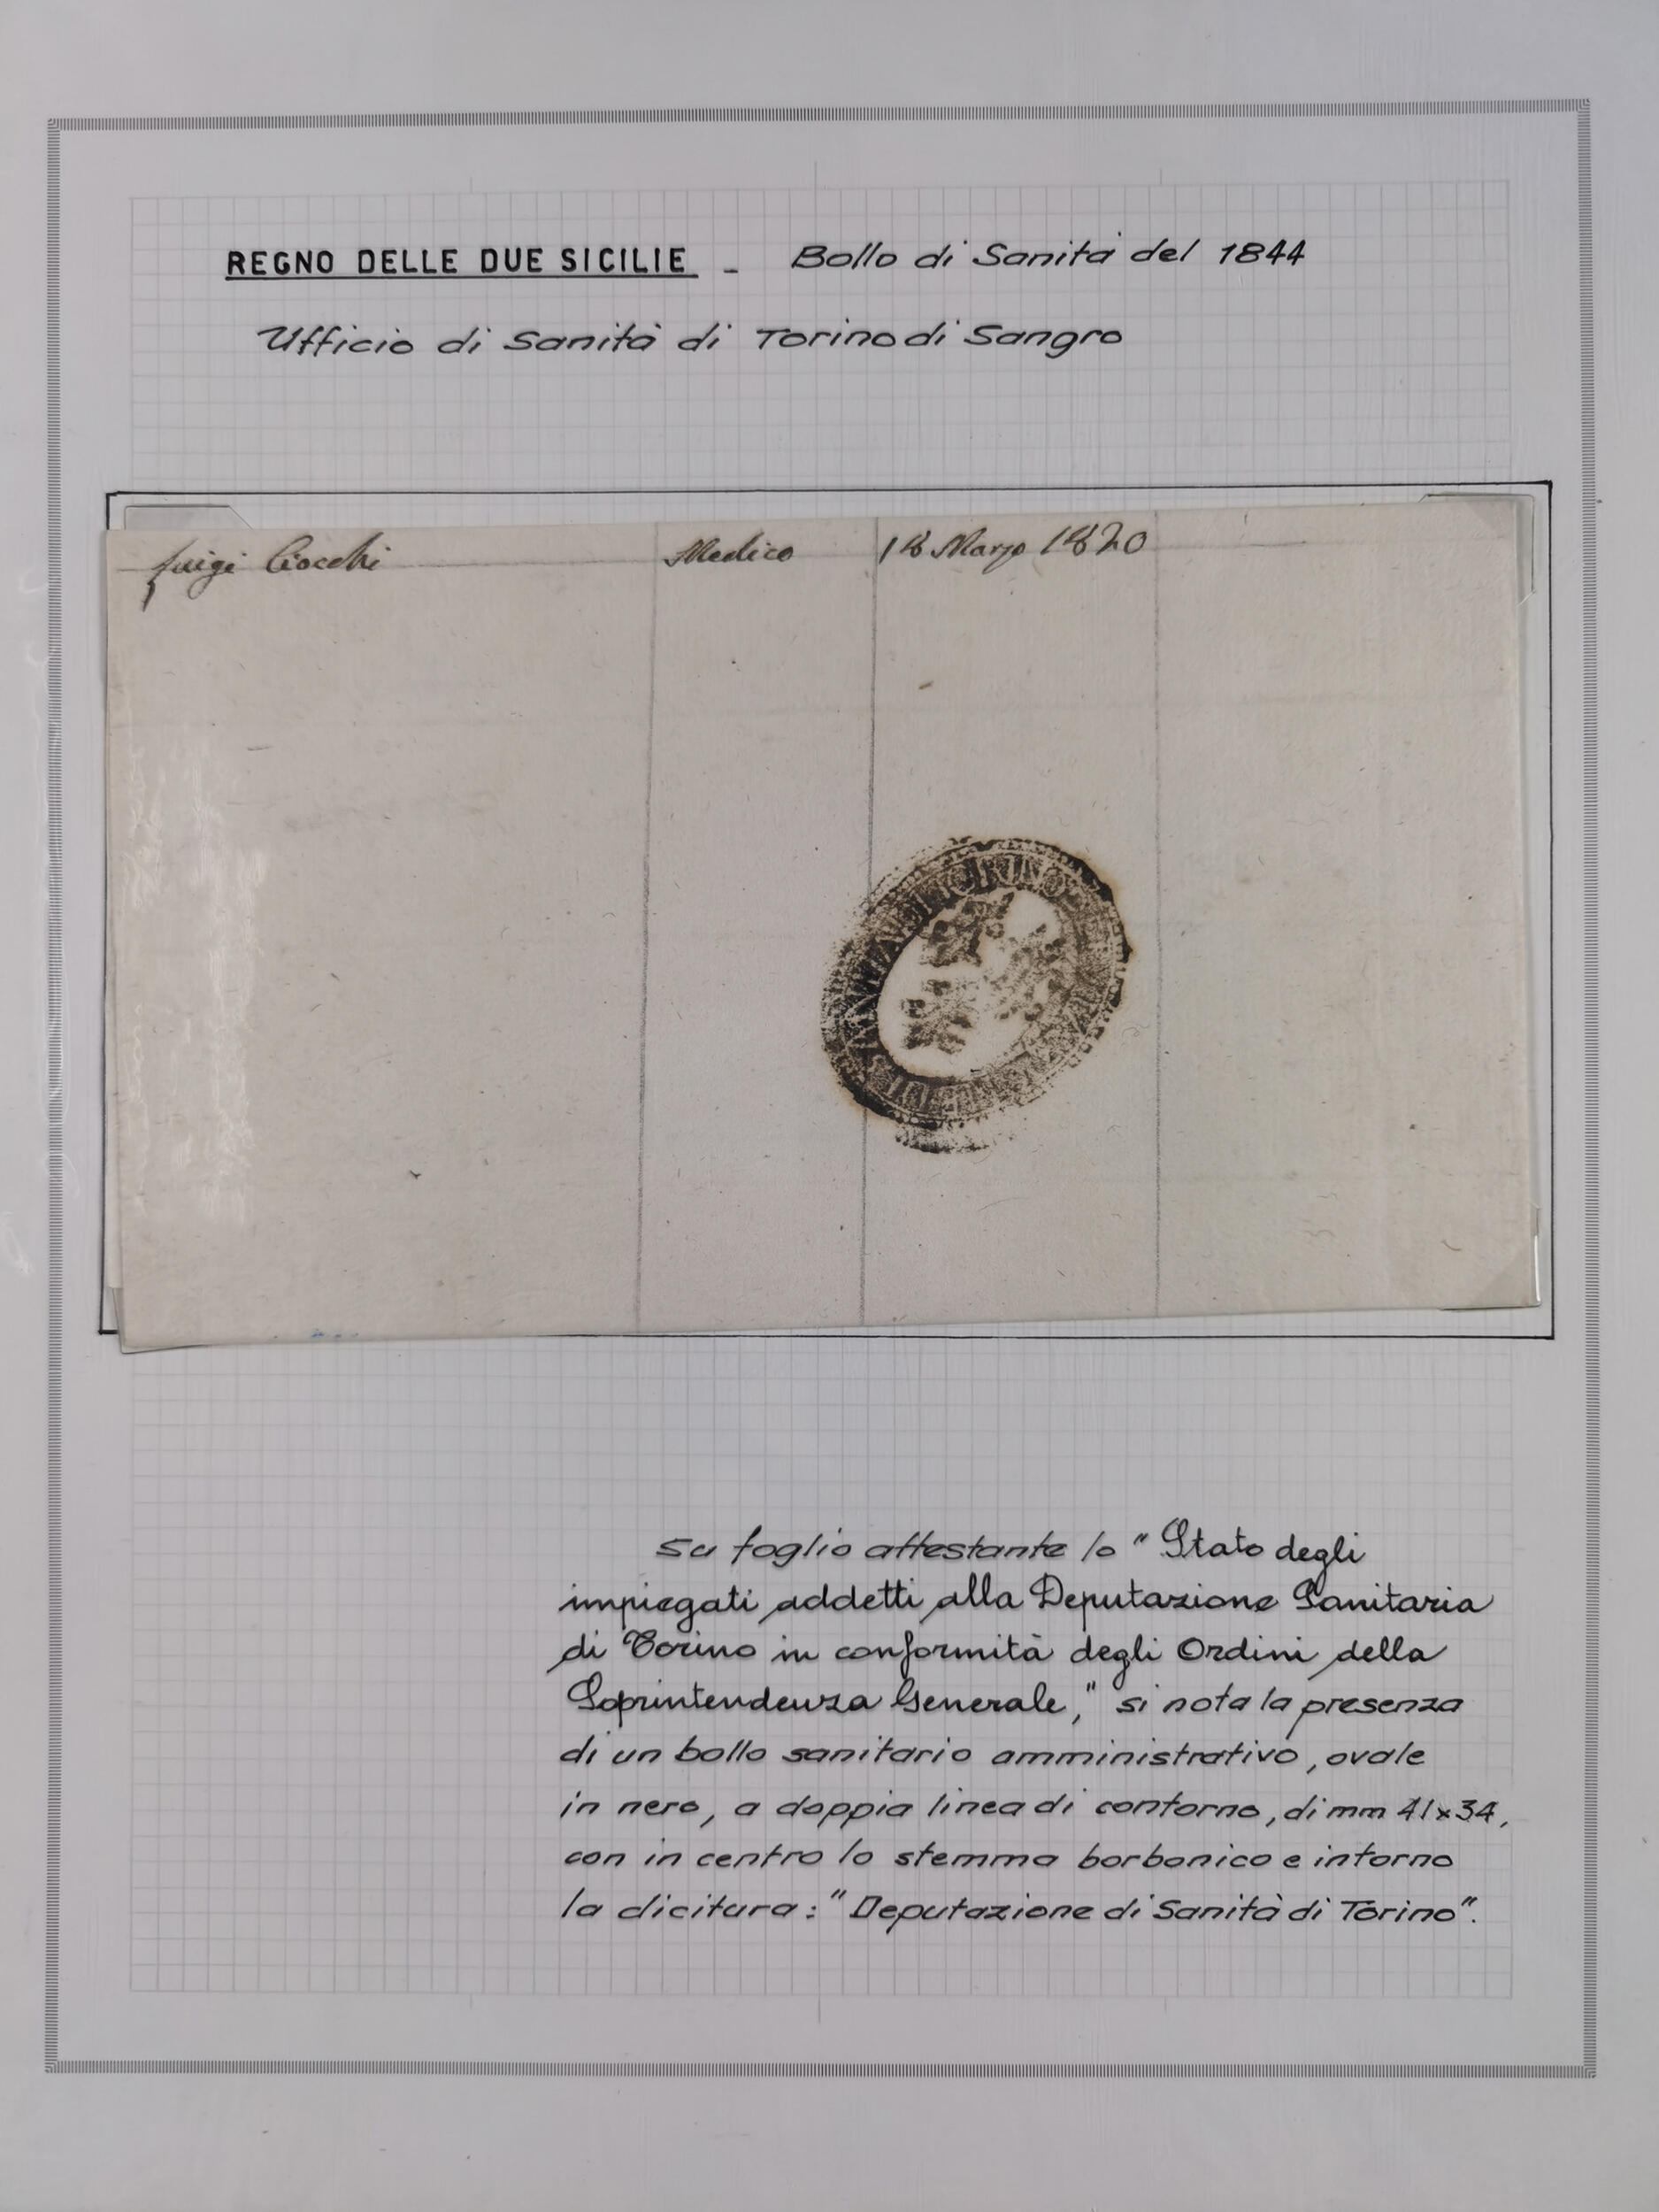 REGNO DELLE DUE SICILIE - Bollo di Sanità del 1844
Ufficio di Sanità di Torino di Sangro
Luigi Ciocchi Medico 18 Marzo 1820
SANITA DI TORINO
Su foglio attestante lo "Stato degli
impiegati addetti alla Deputazione Sanitaria
di Torino in conformità degli Ordini della
Soprintendenza Generale," si nota la presenza
di un bollo sanitario amministrativo, ovale
in nero, a doppia linea di contorno, di mm 41x34,
con in centro lo stemma borbonico e intorno
la dicitura: "Deputazione di Sanità di Torino".